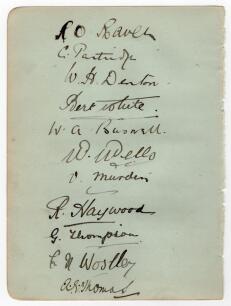 C. Partridge
W. H. Denton
Bert White.
W A Buswell.
W. Wells
V. Murdin
R. Haywood
G. Thompson
N Woolley
A. E. Thomas